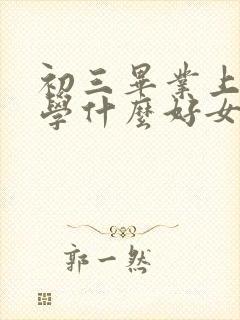 初三畢業上
學什麼好女
郭一然